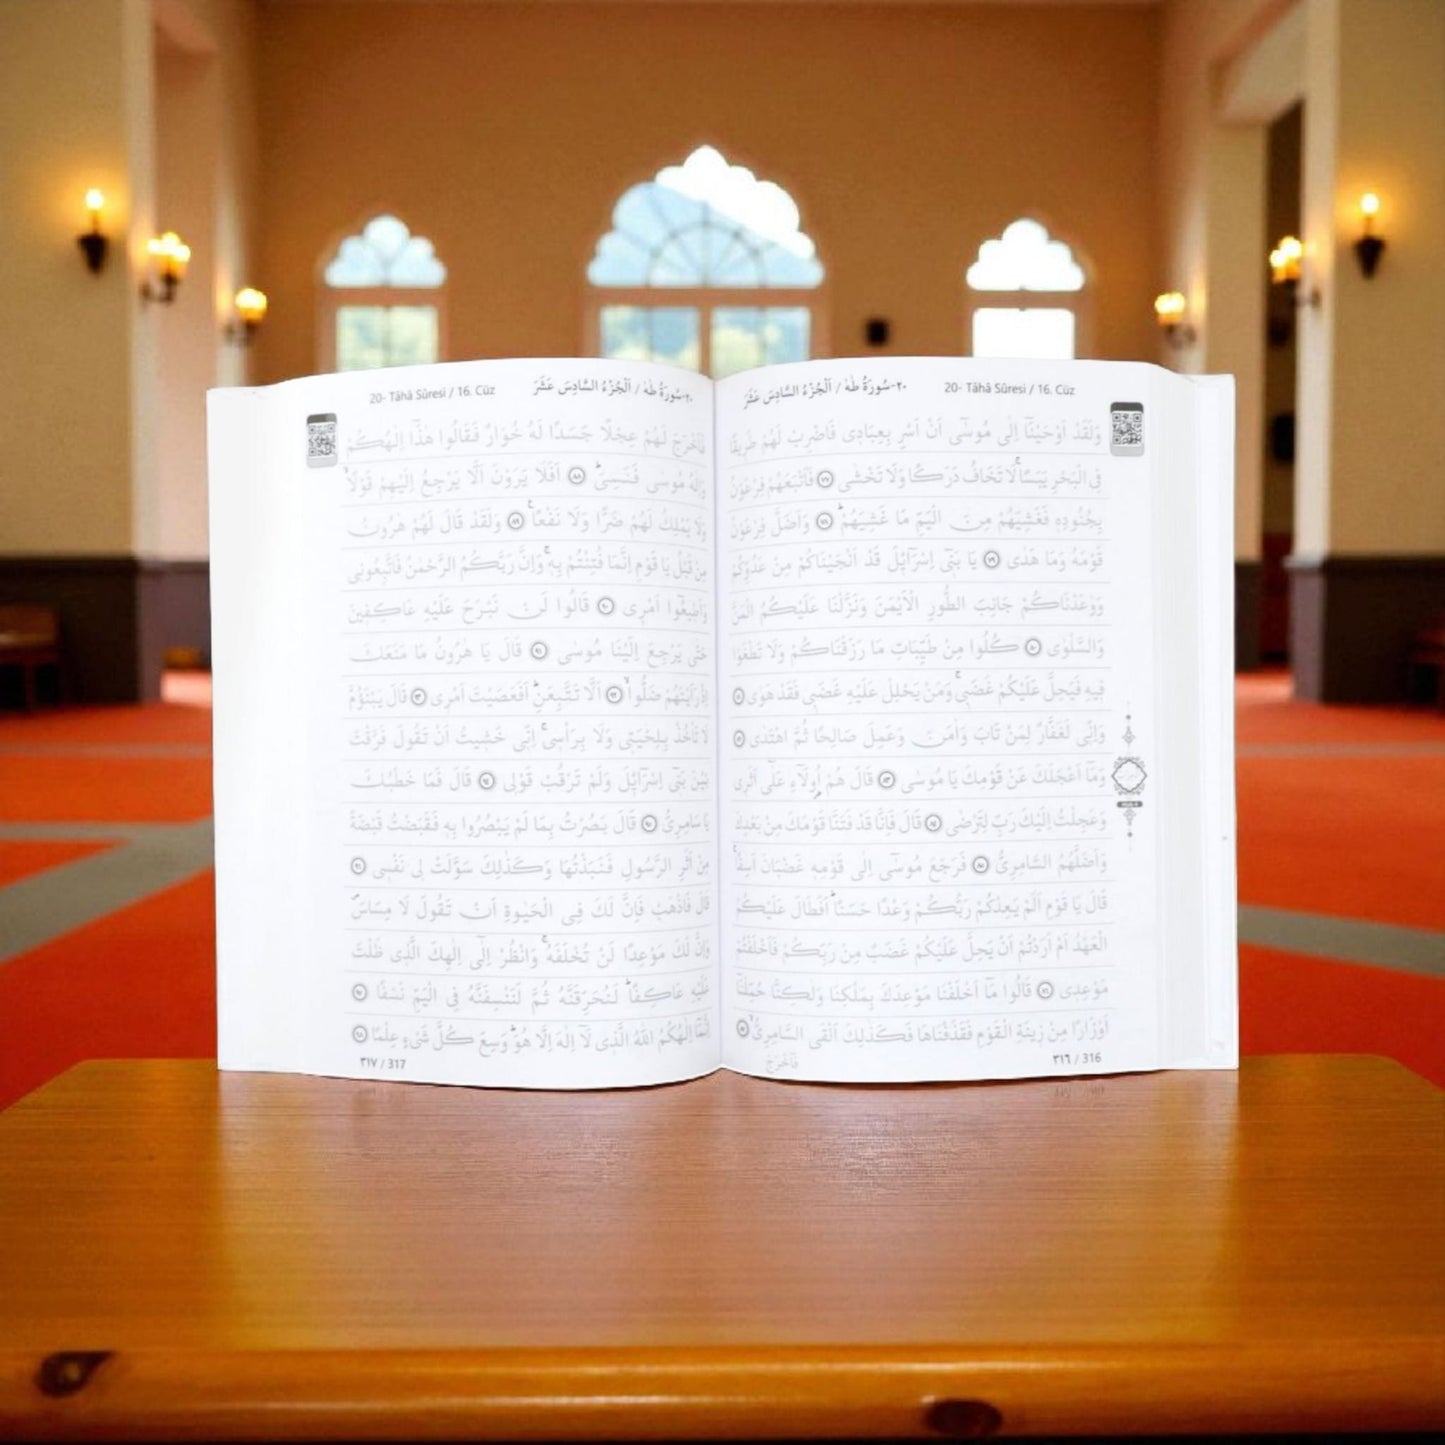 ٢٠-سُورَةُ طٰهٰ / اَلْجُزْءُ السَّادِسَ عَشَرَ
20- Tâhâ Sûresi / 16. Cüz
وَلَقَدْ اَوْحَيْنَٓا اِلٰى مُوسٰٓى اَنْ اَسْرِ بِعِبَادٖى فَاضْرِبْ لَهُمْ طَرٖيقًا
فِى الْبَحْرِ يَبَسًاۙ لَا تَخَافُ دَرَكًا وَلَا تَخْشٰى ﴿٧٧﴾ فَاَتْبَعَهُمْ فِرْعَوْنُ
بِجُنُودِهٖ فَغَشِيَهُمْ مِنَ الْيَمِّ مَا غَشِيَهُمْؕ ﴿٧٨﴾ وَاَضَلَّ فِرْعَوْنُ
قَوْمَهُ وَمَا هَدٰى ﴿٧٩﴾ يَا بَنٖٓى اِسْرَٓائٖلَ قَدْ اَنْجَيْنَاكُمْ مِنْ عَدُوِّكُمْ
وَوٰعَدْنَاكُمْ جَانِبَ الطُّورِ الْاَيْمَنَ وَنَزَّلْنَا عَلَيْكُمُ الْمَنَّ
وَالسَّلْوٰى ﴿٨٠﴾ كُلُوا مِنْ طَيِّبَاتِ مَا رَزَقْنَاكُمْ وَلَا تَطْغَوْا
فٖيهِ فَيَحِلَّ عَلَيْكُمْ غَضَبٖىۚ وَمَنْ يَحْلِلْ عَلَيْهِ غَضَبٖى فَقَدْ هَوٰى ﴿٨١﴾
وَاِنّٖى لَغَفَّارٌ لِمَنْ تَابَ وَاٰمَنَ وَعَمِلَ صَالِحًا ثُمَّ اهْتَدٰى ﴿٨٢﴾
وَمَٓا اَعْجَلَكَ عَنْ قَوْمِكَ يَا مُوسٰى ﴿٨٣﴾ قَالَ هُمْ اُو۬لَٓاءِ عَلٰٓى اَثَرٖى
وَعَجِلْتُ اِلَيْكَ رَبِّ لِتَرْضٰى ﴿٨٤﴾ قَالَ فَاِنَّا قَدْ فَتَنَّا قَوْمَكَ مِنْ بَعْدِكَ
وَاَضَلَّهُمُ السَّامِرِىُّ ﴿٨٥﴾ فَرَجَعَ مُوسٰٓى اِلٰى قَوْمِهٖ غَضْبَانَ اَسِفًاۚ
قَالَ يَا قَوْمِ اَلَمْ يَعِدْكُمْ رَبُّكُمْ وَعْدًا حَسَنًاؕ اَفَطَالَ عَلَيْكُمُ
الْعَهْدُ اَمْ اَرَدْتُمْ اَنْ يَحِلَّ عَلَيْكُمْ غَضَبٌ مِنْ رَبِّكُمْ فَاَخْلَفْتُمْ
مَوْعِدٖى ﴿٨٦﴾ قَالُوا مَٓا اَخْلَفْنَا مَوْعِدَكَ بِمَلْكِنَا وَلٰكِنَّا حُمِّلْنَٓا
اَوْزَارًا مِنْ زٖينَةِ الْقَوْمِ فَقَذَفْنَاهَا فَكَذٰلِكَ اَلْقَى السَّامِرِىُّۙ ﴿٨٧﴾
فَاَخْرَجَ
٣١٦ / 316
20- Tâhâ Sûresi / 16. Cüz
٢٠-سُورَةُ طٰهٰ / اَلْجُزْءُ السَّادِسَ عَشَرَ
فَاَخْرَجَ لَهُمْ عِجْلًا جَسَدًا لَهُ خُوَارٌ فَقَالُوا هٰذَٓا اِلٰهُكُمْ
وَاِلٰهُ مُوسٰى فَنَسِىَؕ ﴿٨٨﴾ اَفَلَا يَرَوْنَ اَلَّا يَرْجِعُ اِلَيْهِمْ قَوْلًاۙ
وَلَا يَمْلِكُ لَهُمْ ضَرًّا وَلَا نَفْعًاۚ ﴿٨٩﴾ وَلَقَدْ قَالَ لَهُمْ هٰرُونُ
مِنْ قَبْلُ يَا قَوْمِ اِنَّمَا فُتِنْتُمْ بِهٖۚ وَاِنَّ رَبَّكُمُ الرَّحْمٰنُ فَاتَّبِعُونٖى
وَاَطٖيعُٓوا اَمْرٖى ﴿٩٠﴾ قَالُوا لَنْ نَبْرَحَ عَلَيْهِ عَاكِفٖينَ
حَتّٰى يَرْجِعَ اِلَيْنَا مُوسٰى ﴿٩١﴾ قَالَ يَا هٰرُونُ مَا مَنَعَكَ
اِذْ رَاَيْتَهُمْ ضَلُّواۙ ﴿٩٢﴾ اَلَّا تَتَّبِعَنِؕ اَفَعَصَيْتَ اَمْرٖى ﴿٩٣﴾ قَالَ يَبْنَؤُ۬مَّ
لَا تَأْخُذْ بِلِحْيَتٖى وَلَا بِرَأْسٖىۚ اِنّٖى خَشٖيتُ اَنْ تَقُولَ فَرَّقْتَ
بَيْنَ بَنٖٓى اِسْرَٓائٖلَ وَلَمْ تَرْقُبْ قَوْلٖى ﴿٩٤﴾ قَالَ فَمَا خَطْبُكَ
يَا سَامِرِىُّ ﴿٩٥﴾ قَالَ بَصُرْتُ بِمَا لَمْ يَبْصُرُوا بِهٖ فَقَبَضْتُ قَبْضَةً
مِنْ اَثَرِ الرَّسُولِ فَنَبَذْتُهَا وَكَذٰلِكَ سَوَّلَتْ لٖى نَفْسٖى ﴿٩٦﴾
قَالَ فَاذْهَبْ فَاِنَّ لَكَ فِى الْحَيٰوةِ اَنْ تَقُولَ لَا مِسَاسَۖ
وَاِنَّ لَكَ مَوْعِدًا لَنْ تُخْلَفَهُۚ وَانْظُرْ اِلٰٓى اِلٰهِكَ الَّذٖى ظَلْتَ
عَلَيْهِ عَاكِفًاؕ لَنُحَرِّقَنَّهُ ثُمَّ لَنَنْسِفَنَّهُ فِى الْيَمِّ نَسْفًا ﴿٩٧﴾
اِنَّمَٓا اِلٰهُكُمُ اللّٰهُ الَّذٖى لَٓا اِلٰهَ اِلَّا هُوَؕ وَسِعَ كُلَّ شَىْءٍ عِلْمًا ﴿٩٨﴾
٣١٧ / 317